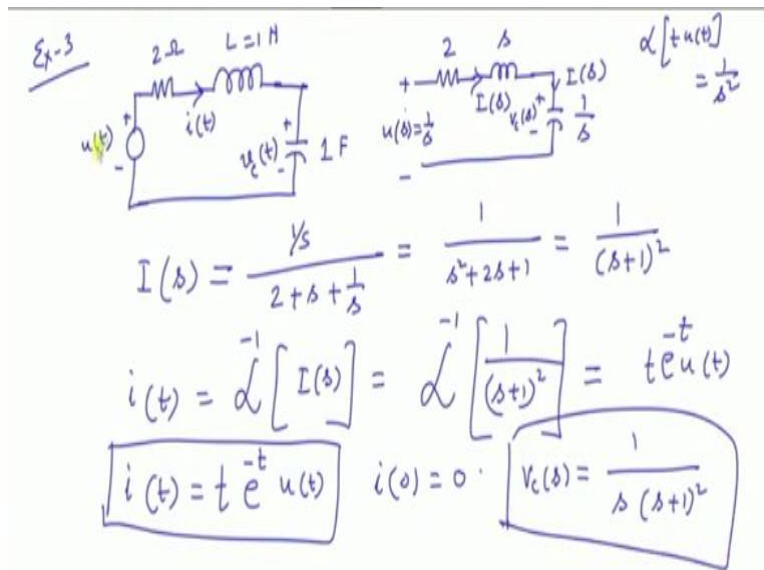 Ex-3
2Ω L=1H
u(t) + - i(t) + v_c(t) - 1F
2 s
+ I(s) I(s)
u(s)=1/s v_c(s) + - 1/s
-
ℒ[t u(t)]
= 1/s²
I(s) = (1/s)/(2+s+1/s) = 1/(s²+2s+1) = 1/(s+1)²
i(t) = ℒ⁻¹[I(s)] = ℒ⁻¹[1/(s+1)²] = t e^-t u(t)
i(t) = t e^-t u(t) i(0) = 0. V_c(s) = 1/(s(s+1)²)